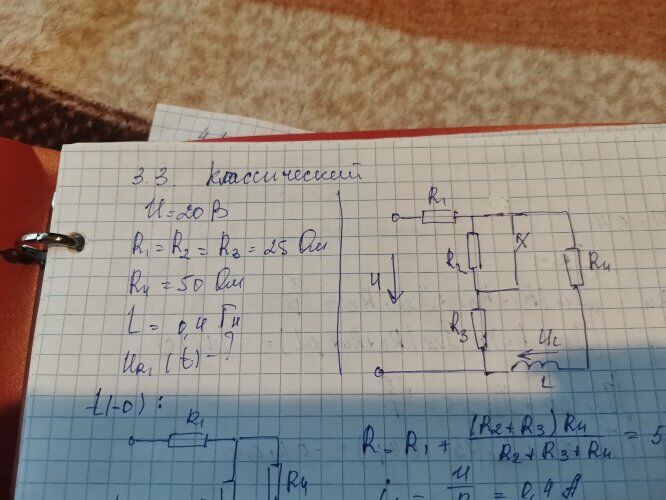 3.3. Классический
U = 20 В
R1 = R2 = R3 = 25 Ом
R4 = 50 Ом
L = 0,4 Гн
UR1 (t) - ?
R1
R2
R4
U
R3
UL
L
t(-0) :
R1
R4
R = R1 + (R2 + R3) R4 / R2 + R3 + R4 = 5
U
= 0,4 А